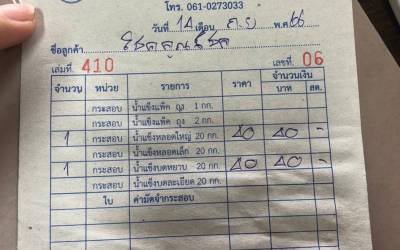 โทร. 061-0273033
วันที่ 14 เดือน ก.ย พ.ศ 66
ชื่อลูกค้า โชคคูณโชค
เล่มที่. 410 เลขที่. 06
จำนวน หน่วย รายการ ราคา จำนวนเงิน
บาท สต.
กระสอบ น้ำแข็งแพ็ค ถุง 1 กก.
กระสอบ น้ำแข็งแพ็ค ถุง 2 กก.
1 กระสอบ น้ำแข็งหลอดใหญ่ 20 กก. 40 40 -
กระสอบ น้ำแข็งหลอดเล็ก 20 กก.
1 กระสอบ น้ำแข็งบดหยาบ 20 กก. 40 40 -
กระสอบ น้ำแข็งบดละเอียด 20 กก.
ใบ ค่ามัดจำกระสอบ